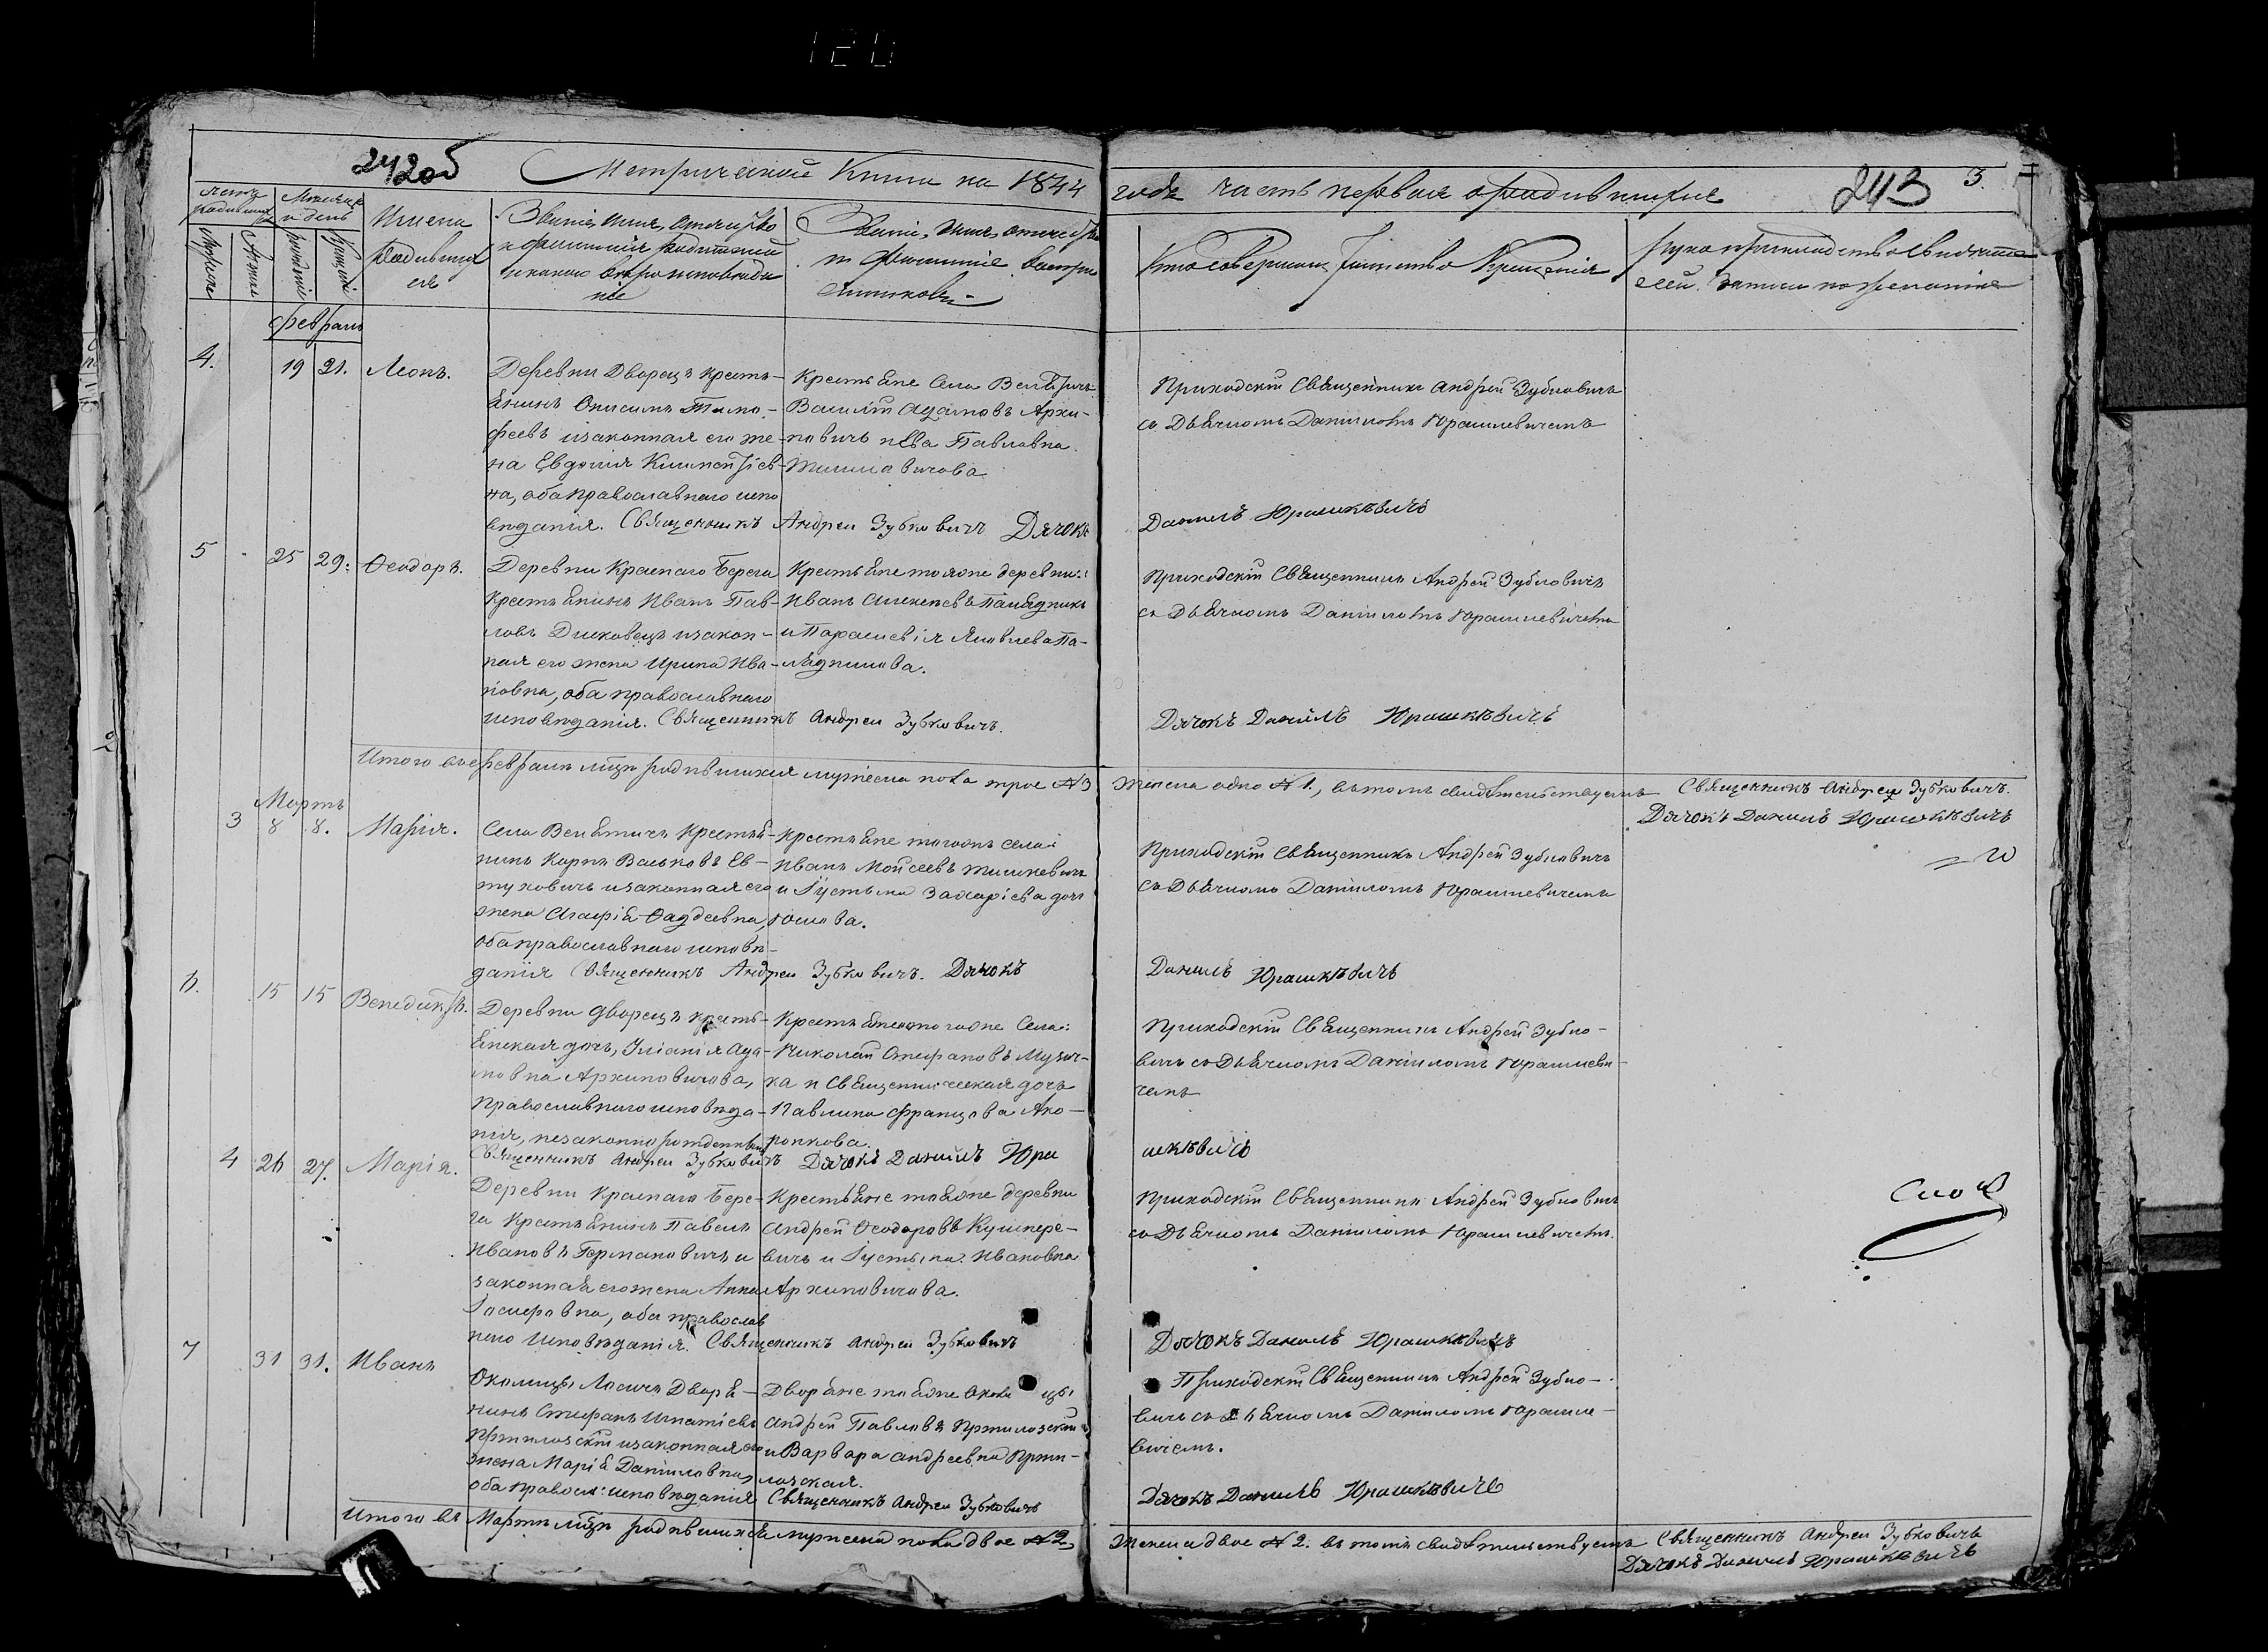 120
242об
Метрической Книги на 1844
года часть первая о родившихся
243
3.
Мѣсяцъ и день
Имена родившихся
Званіе, Имя, Отчество и фамилія родителей и какого вѣроисповѣданіе
Званіе, Имя, отчество и фамиліе воспріемниковъ
Кто совершалъ Таинство Крещенія
Рукоприкладство свидѣтелей записи по желанію
Февраль
4. 19 21. Леонъ.
Деревни Дворецъ кресть-
янинъ Онисимъ Тимо-
феевъ и законная его же-
на Евдокія Климентіев-
на, оба православнаго испо
вѣданія. Священникъ Андрей Зубковичъ Дячокъ
Крестьяне Села
Василій Адамовъ Архи-
повичъ и Ева Павловна
Приходскій Священникъ Андрей Зубковичъ
съ Дьячкомъ Даніиломъ Юрашкевичемъ
Данилъ Юрашкѣвичъ
5 25 29. Ѳеодоръ.
Деревни Краснаго Берега
крестьянинъ Иванъ Пав-
ловъ и закон-
ная его жена Ирина Ива-
новна, оба православнаго
исповѣданія. Священникъ Андрей Зубковичъ.
Крестьяне тояже деревни:
Иванъ
и Параскевія Яковлева Па-
Приходскій Священникъ Андрей Зубковичъ
съ Дьячкомъ Даніиломъ Юрашкевичемъ
Дячокъ Данилъ Юрашкѣвичъ
Итого въ февралѣ мцѣ родившихся мужеска пола трое № 3
женска одно № 1., въ томъ свидѣтельствуемъ
Священникъ Андрей Зубковичъ.
Дячокъ Данилъ Юрашкѣвичъ
Мартъ
3 8 8. Марія.
Села Велятичъ крестья-
нинъ Карпъ Васьковъ Ев-
туховичъ и законная его
жена Агафія Ѳаддеевна,
оба православнаго исповѣ-
данія Священникъ Андрей Зубковичъ. Дячокъ
Крестьяне тогожъ села:
Иванъ Мойсеевъ Тишкевичъ
и Іустына Захаріева доч
Приходскій Священникъ Андрей Зубковичъ
съ Дьячкомъ Даніиломъ Юрашкевичемъ
Данилъ Юрашкѣвичъ
6. 15 15 Венедиктъ.
Деревни Дворецъ кресть-
янская дочь, Юліанія Ада-
мовна Архиповичова,
Православнаго исповѣда-
нія, незаконно рожденный
Священникъ Андрей Зубковичъ Дячокъ Данилъ Юра
Николай Стефановъ Музыч-
ка и Священническая дочь
Павлина Францова Ако-
ронкова.
Приходскій Священникъ Андрей Зубко-
вичъ съ Дьячкомъ Даніиломъ Юрашкеви-
чемъ
шкѣвичъ
4 26 27. Марія.
Деревни Краснаго Бере-
га Крестьянинъ Павелъ
Ивановъ Германовичъ и
законная его жена Анна
Іосифовна, оба православ
наго Исповѣданія. Священникъ Андрей Зубковичъ
Крестьяне тояже деревни
Андрей Ѳеодоровъ Кушнере-
вичъ и Іустына Ивановна
Архиповичова.
Приходскій Священникъ Андрей Зубковичъ
съ Дьячкомъ Даніиломъ Юрашкевичемъ.
Дячокъ Данилъ Юрашкѣвичъ
7 31 31. Иванъ
Околицы Лосичъ Дворя-
нинъ Стефанъ Игнатіевъ
и законная его
жена Марія Даніиловна,
оба правосл: исповѣданія Священникъ Андрей Зубковичъ
Дворяне тояже Околицы
Андрей Павловъ
и Варвара Андреевна
Приходскій Священникъ Андрей Зубко-
вичъ съ Дьячкомъ Даніиломъ Юрашке-
вичемъ.
Дячокъ Данилъ Юрашкѣвичъ
Итого въ Мартѣ мцѣ родившихся мужеска пола двое № 2,
Женска двое № 2. въ томъ свидѣтельствуемъ
Священникъ Андрей Зубковичъ
Дячокъ Данилъ Юрашкѣвичъ